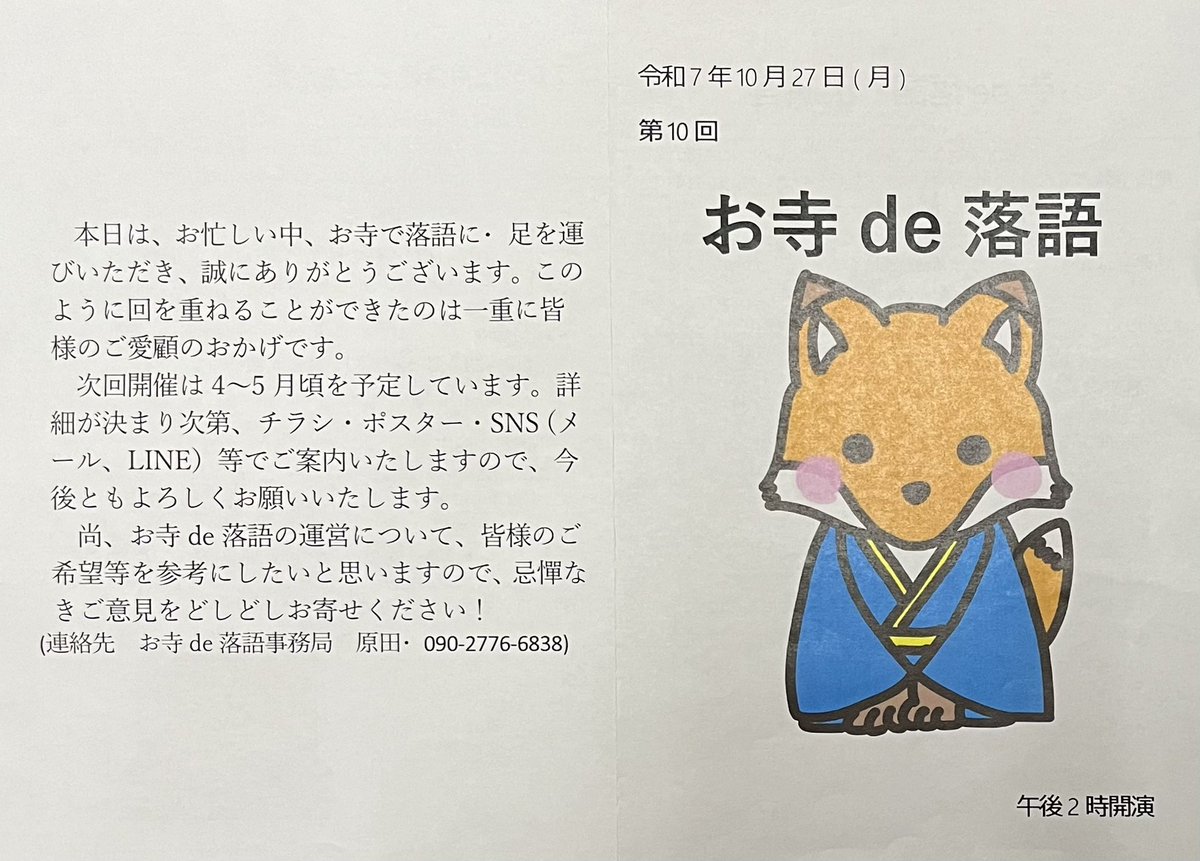 本日は、お忙しい中、お寺で落語に・足を運
びいただき、誠にありがとうございます。この
ように回を重ねることができたのは一重に皆
様のご愛顧のおかげです。
次回開催は4～5月頃を予定しています。詳
細が決まり次第、チラシ・ポスター・SNS（メ
ール、LINE）等でご案内いたしますので、今
後ともよろしくお願いいたします。
尚、お寺de落語の運営について、皆様のご
希望等を参考にしたいと思いますので、忌憚な
きご意見をどしどしお寄せください！
(連絡先　お寺de落語事務局　原田・090-2776-6838)
令和7年10月27日(月)
第10回
お寺de落語
午後2時開演